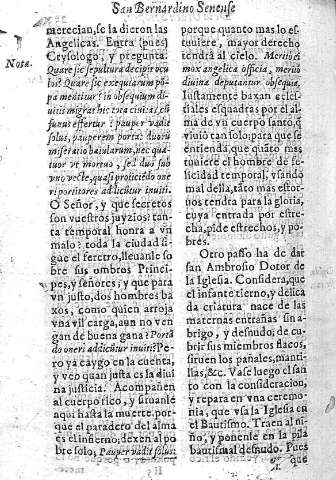 San Bernardino Senense
merecian, se la dieron las
Angelicas. Entra (pues)
Crysologo, y pregunta.
Nota.
Quare sic sepultura decipit ocu
los? Quare sic exequiarum põ
pa mentitur? in obsequium di-
uitis migrat hic tota ciuitas, cũ
funus effertur: pauper vadit
solus, pauperem portat duorũ
miseratio baiularum, nec qua-
tuor vt mereno, sed duo sub
vno vecte, quasi proijciẽdo one
ri poritores addicitur inuiti.
O Señor, y que secretos
son vuestros juyzios? tan-
ta temporal honra a vn
malo? toda la ciudad si-
gue el feretro, lleuanle so
bre sus ombros Princi-
pes, y señores; y que para
vn justo, dos hombres ba
xos, como quien arroja
vna vil carga, aun no ven
gan de buena gana? Portã
do oneri addicitur inuiti? Pe-
ro ya caygo en la cuenta,
y veo quan justa es la diui
na justicia. Acompañen
al cuerpo rico, y siruanle
aqui hasta la muerte. por-
que el paradero del alma
es el infierno; dexen al po
bre solo; Pauper vadit solus:
porque quanto mas lo es-
tuuiere, mayor derecho
tendrá al cielo. Meritò ei
mox angelica officia, meritò
diuina deputantur obsequia.
Iustamente baxan cele-
stiales esquadras por el alma
de vn cuerpo santo, q̃
viuió tan solo; para que se
entienda, que quãto mas
tuuiere el hombre de fe-
licidad temporal, vsando
mal della, tãto mas estor-
uos tendra para la gloria,
cuya entrada por estre-
cha, pide estrechos, y po-
bres.
Otro passo ha de dar
san Ambrosio Dotor de
la Iglesia. Considera, que
el infante tierno, y delica
da criatura nace de las
maternas entrañas sin a-
brigo, y desnudo; de cu-
brir sus miembros flacos,
siruen los pañales, manti-
llas, &c. Vase luego el san
to con la consideracion,
y repara en vna ceremo-
nia, que vsa la Iglesia en
el Bautismo. Traen al ni-
ño, y ponenle en la pila
bautismal desnudo. Pues
que